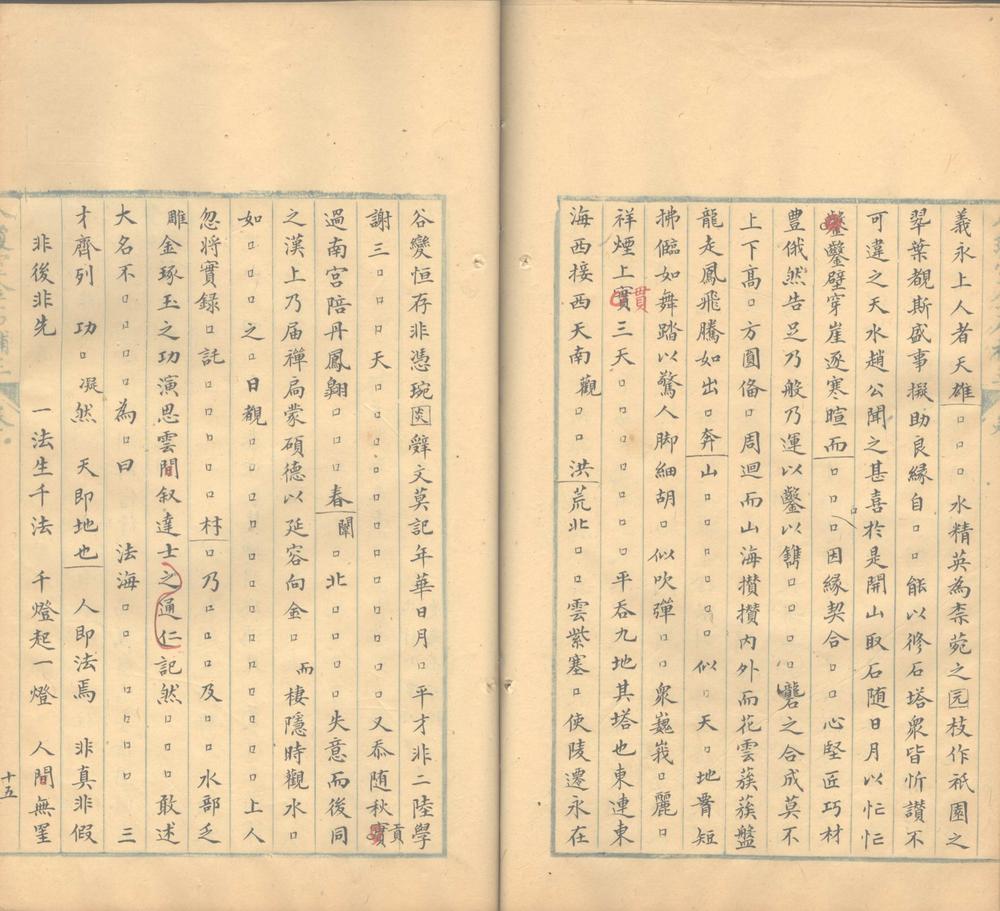 義永上人者天雄□□□水精英為柰菀之园枝作祇園之
翠葉覩斯盛事擬助良緣自□□能以修石塔衆皆忻讃不
可違之天水趙公聞之甚喜於是開山取石随日月以忙忙
鑿壁穿崖逐寒暄而□□□因緣契合□□心堅匠巧材
豊俄然告足乃般乃運以鑿以鐫□□□礱之合成莫不
上下高□方圓俻□周迴而山海攅攅内外而花雲蔟蔟盤
龍走鳳飛騰如出奔山□□□似□天□地霤短
拂儞如舞踏以驚人脚細胡□似吹彈□□衆巍峩□麗□
祥煙上實貫三天□□□□□平吞九地其塔也東連東
海西接西天南觀□□洪荒北□□雲紫塞□使陵遷永在
谷變恒存非憑琬园辤文莫記年華日月□平才非二陸學
謝三□□天□□□□□□□□□□又忝随秋實貢
過南宮陪丹鳳翱□□□春闈□北□□□□失意而後同
之漢上乃届禪扃蒙碩德以延容向金□而棲隱時觀水□
如□□□之□日觀□□□□□□□□□□□□上人
忽將實録□託□□□□□村□乃□□□及□□水部乏
雕金琢玉之功演思雲間叙達士之通仁記然□□□敢述
大名不□□□為曰 法海□□ □□□□ 三
才齊列 功□凝然 天即地也 人即法焉 非真非假
非後非先 一法生千法 千燈起一燈 人間無罣
十五